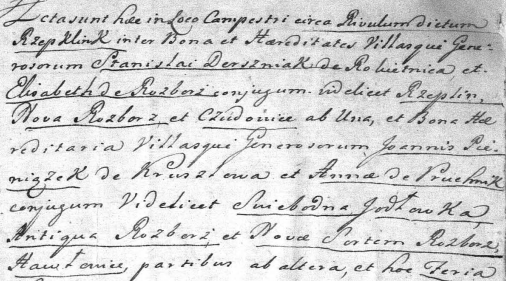 Acta sunt hæc in Loco Campestri circa Rivulum dictum
Rzepklink inter Bona et Hæreditates Villasqui Gene-
rosorum Stanislai Derszniak de Rokietnica et
Elisabeth de Rozborz conjugum. videlicet Rzeplin,
Nova Rozborz, et Czudovice ab Una, et Bona Hæ
reditaria Villasqui Generosorum Joannis Pie-
niązek de Kruszlowa et Annæ de Pruchnik
conjugum Videlicet Swiebodna Jodłowka,
Antiqua Rozborz, et Novæ Sortem Rozborz,
Hawłovice, partibus ab altera, et hoc Feria